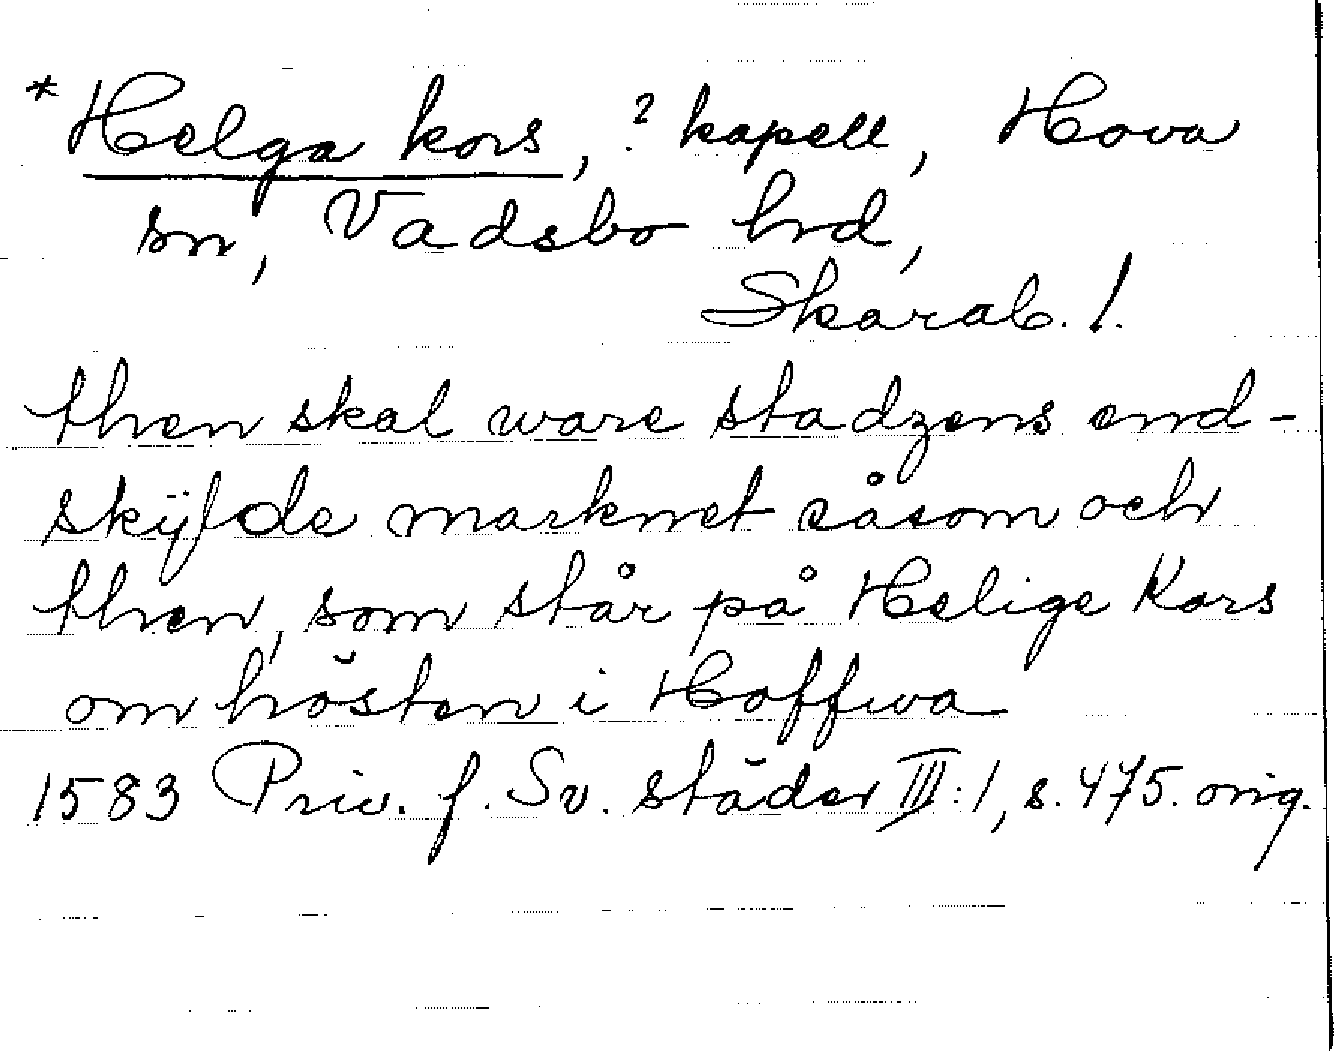 *Helga kors, ? kapell, Hova
sn, Vadsbo hrd,
Skarab. l.
then skal ware stadzens end-
skÿlde marknet såsom och
then, som står på Helige Kors
om hösten i Hoffwa
1583 Priv. f. Sv. städer III:1, s. 475. orig.